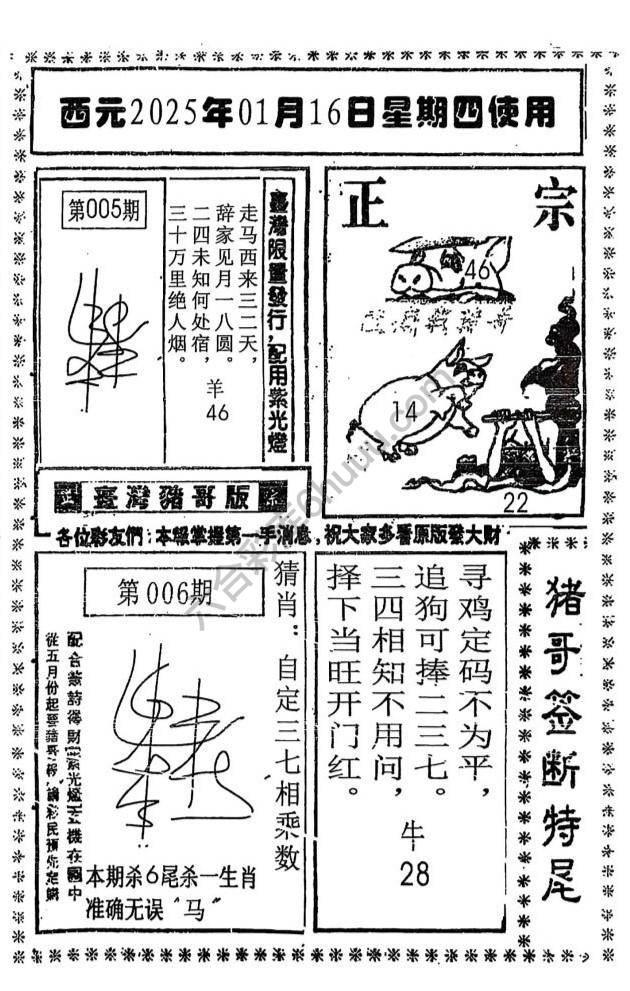 西元2025年01月16日星期四使用
第005期
臺灣限量發行，配用紫光燈
走马西来三二天，
辞家见月一八圆。
二四未知何处宿，
三十万里绝人烟。
羊
46
正宗
46
14
22
臺灣豬哥版
各位彩友們：本報掌握第一手消息，祝大家多看原版發大財
第006期
猜肖：自定三七相乘数
本期杀6尾杀一生肖
准确无误〝马〞
寻鸡定码不为平，
追狗可捧二三七。
三四相知不用问，
择下当旺开门红。
牛
28
猪哥签断特尾
六合彩库6huuu.com